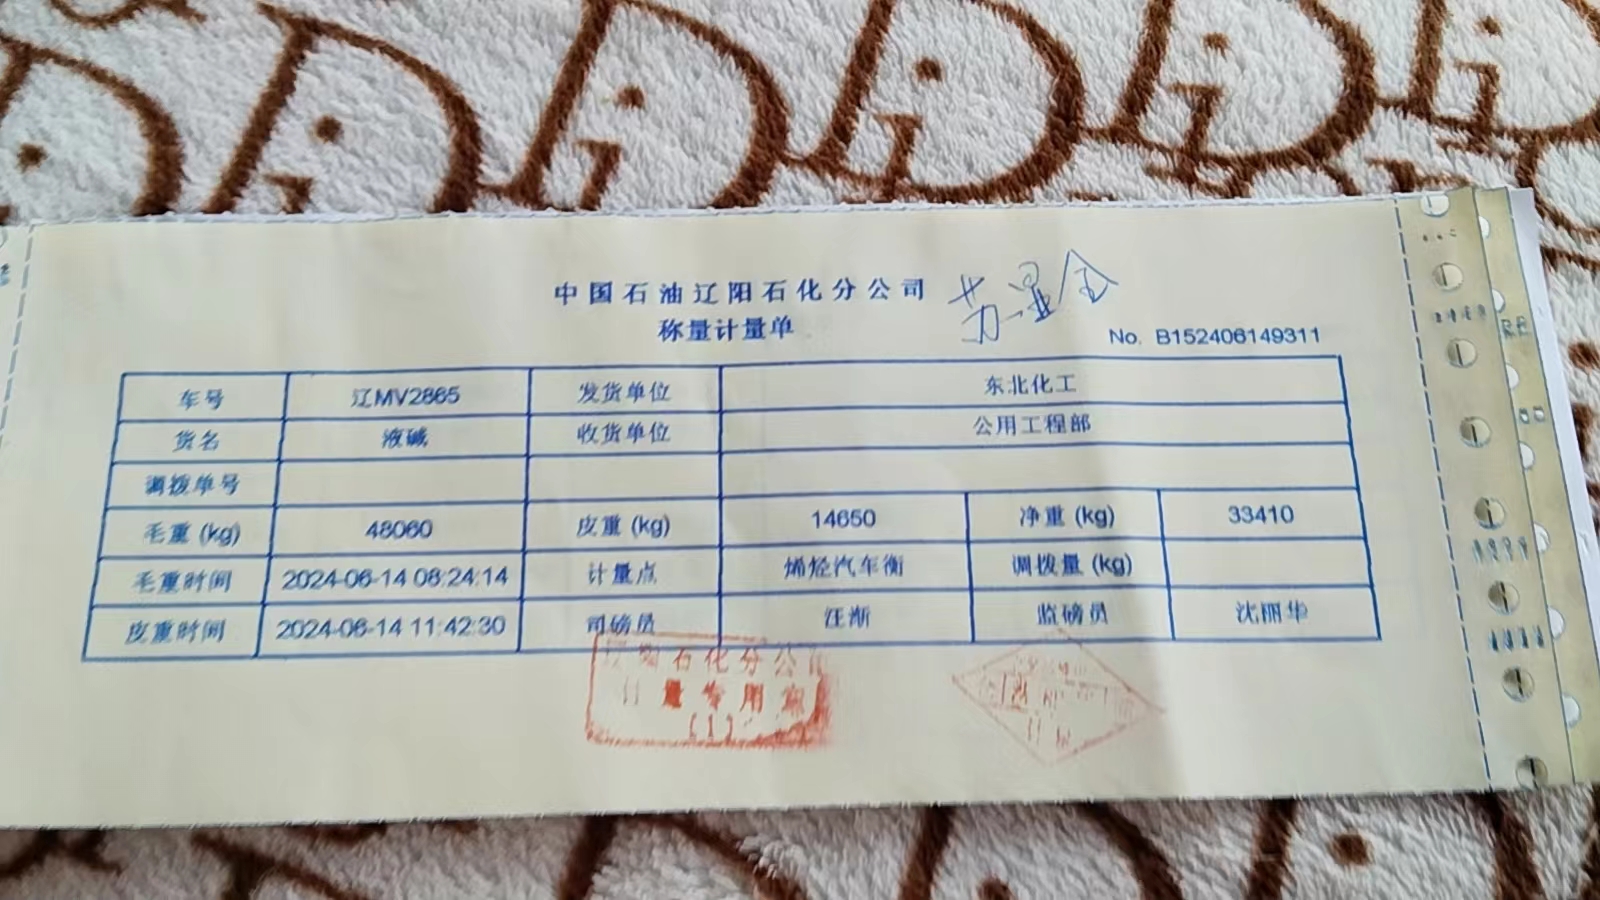 中国石油辽阳石化分公司
称量计量单
No. B152406149311
车号 辽MV2865 发货单位 东北化工
货名 液碱 收货单位 公用工程部
调拨单号
毛重 (kg) 48060 皮重 (kg) 14650 净重 (kg) 33410
毛重时间 2024-06-14 08:24:14 计量点 烯烃汽车衡 调拨量 (kg)
皮重时间 2024-06-14 11:42:30 司磅员 汪渐 监磅员 沈丽华
阳石化分公司
计量专用章
(1)